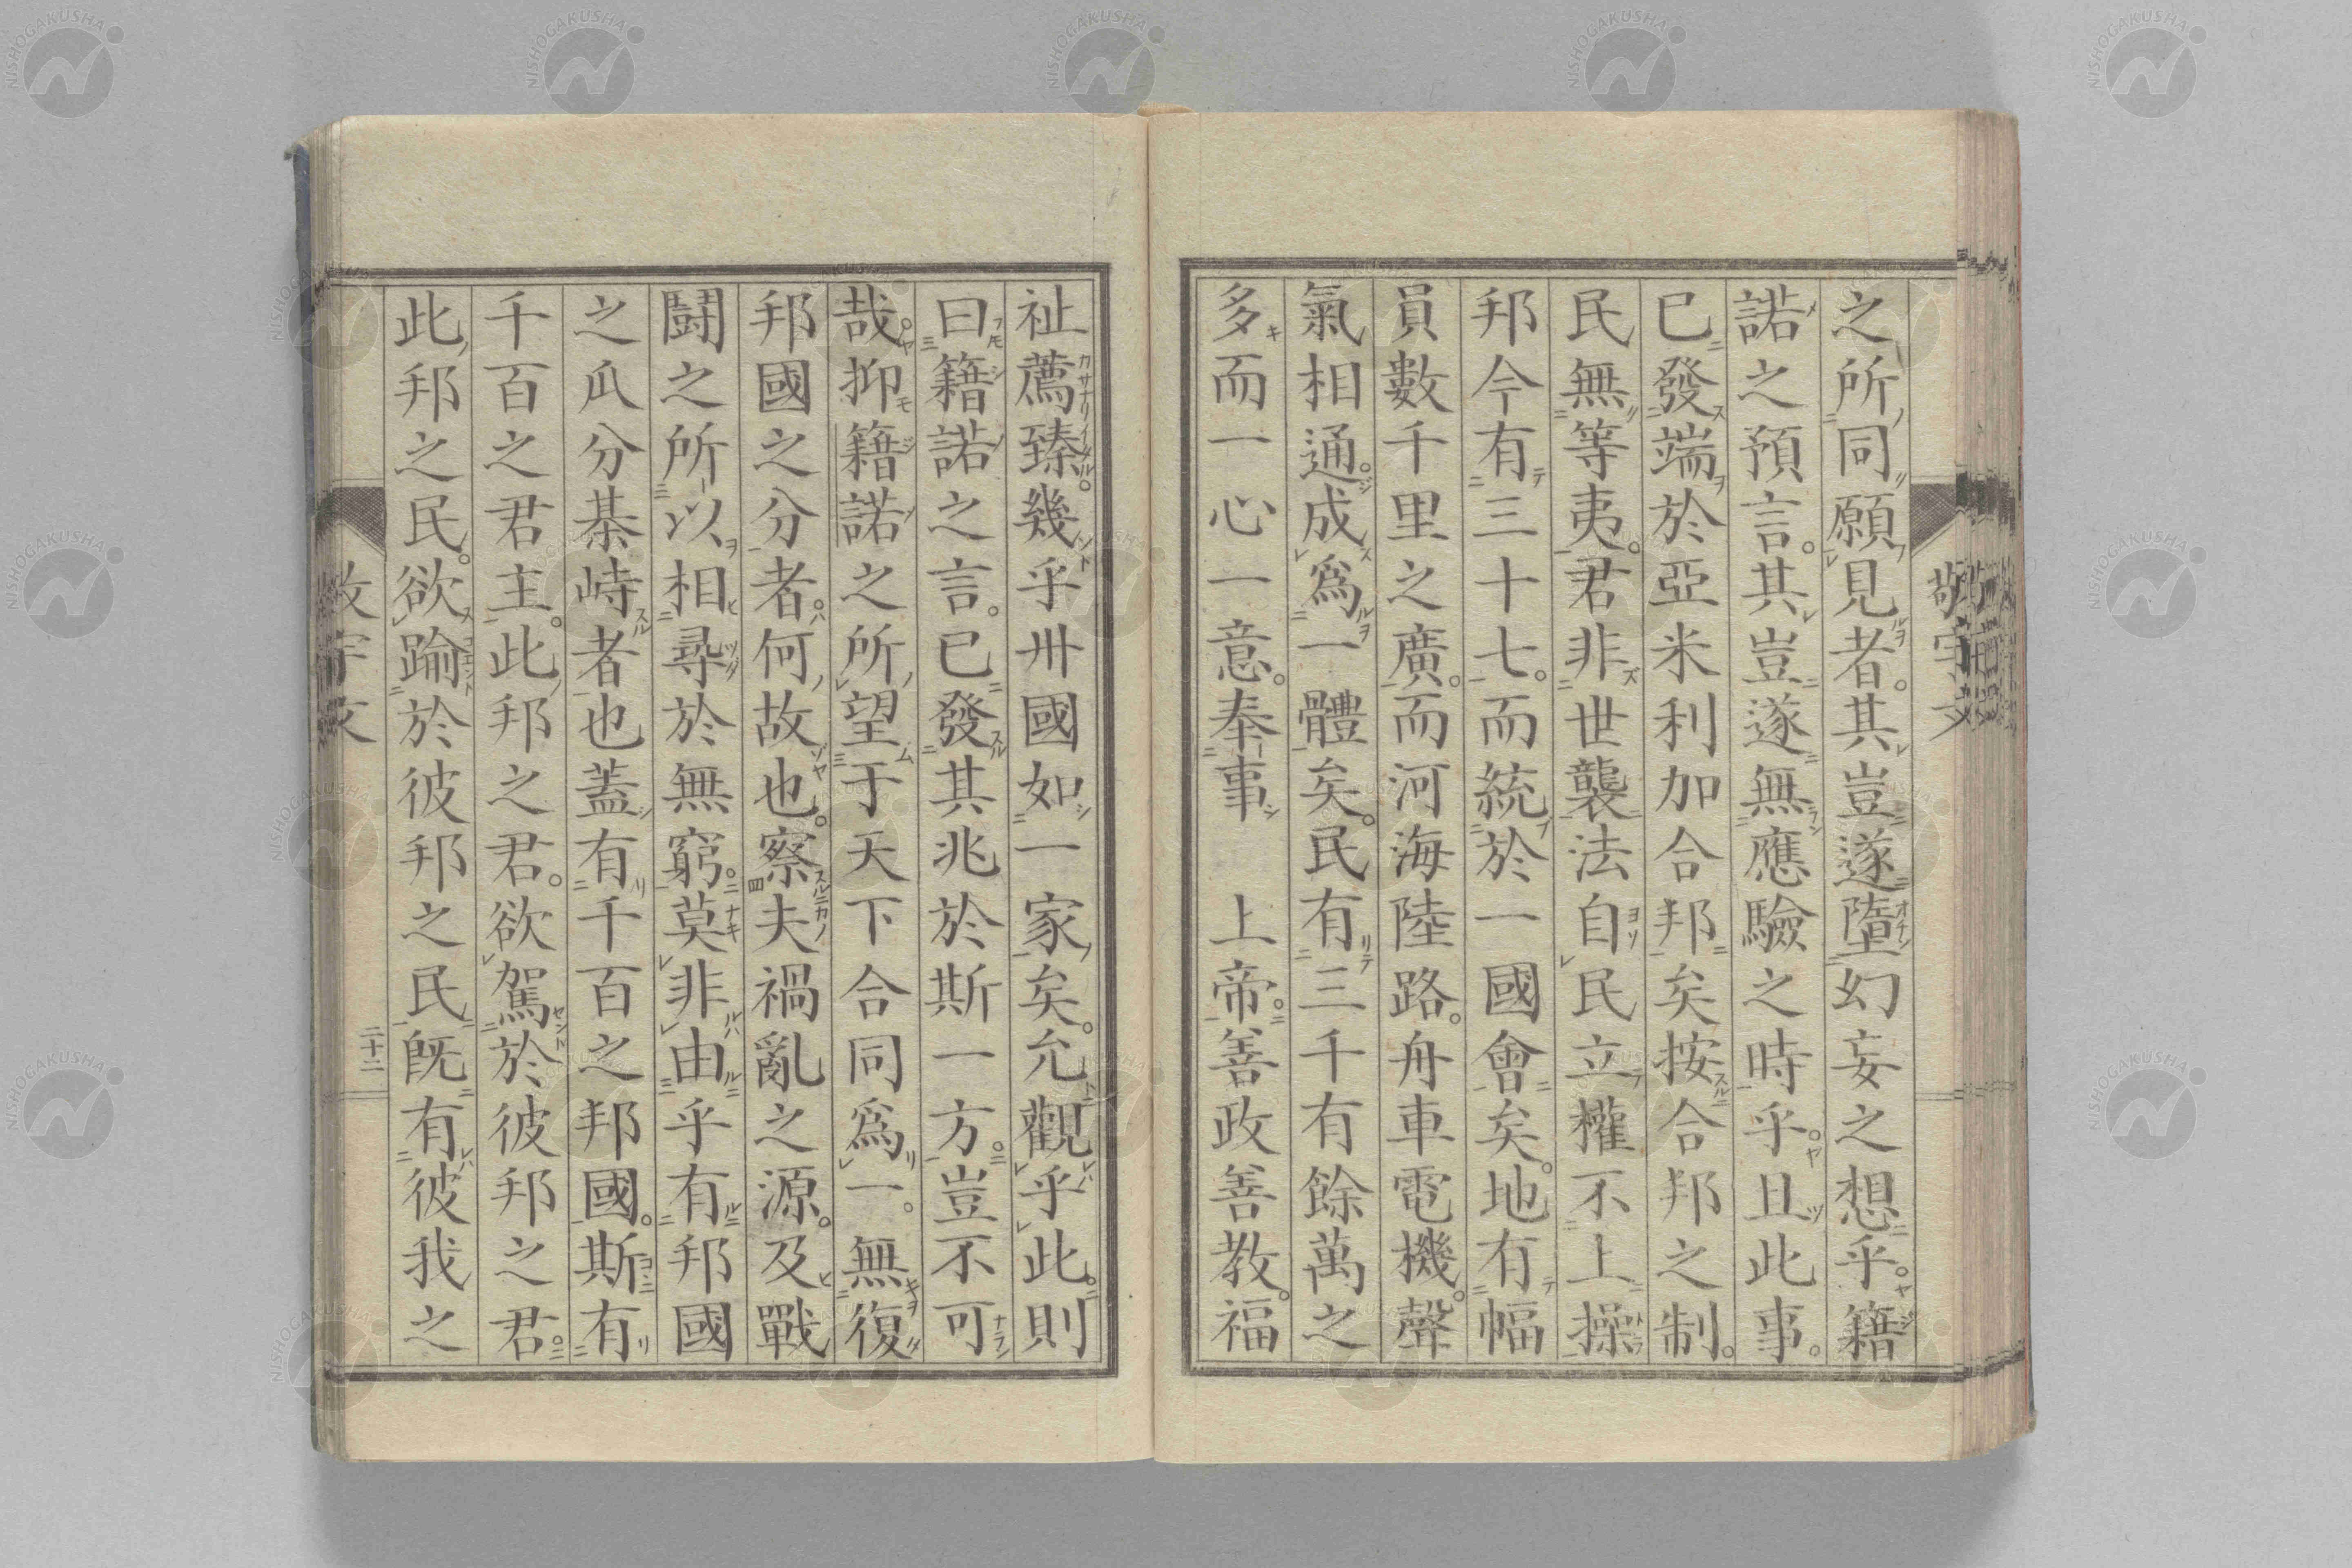 之所同願見者。其豈遂墮幻妄之想乎。籍
諾之預言。其豈遂無應驗之時乎。且此事。
已發端於亞米利加合邦矣按合邦之制。
民無等夷。君非世襲法自民立權不上操
邦今有三十七。而統於一國會矣。地有幅
員數千里之廣。而河海陸路。舟車電機。聲
氣相通。成爲一體矣。民有三千有餘萬之
多而一心一意。奉事　上帝。善政善教。福
祉薦臻。幾乎卅國如一家矣。允觀乎此。則
曰籍諾之言。已發其兆於斯一方。豈不可
哉。抑籍諾之所望于天下合同爲一。無復
邦國之分者。何故也。察夫禍亂之源。及戰
鬪之所以相尋於無窮。莫非由乎有邦國
之瓜分棊峙者也蓋有千百之邦國。斯有
千百之君主。此邦之君。欲駕於彼邦之君。
此邦之民。欲踰於彼邦之民既有彼我之
敬宇文
二十二
NISHOGAKUSHA